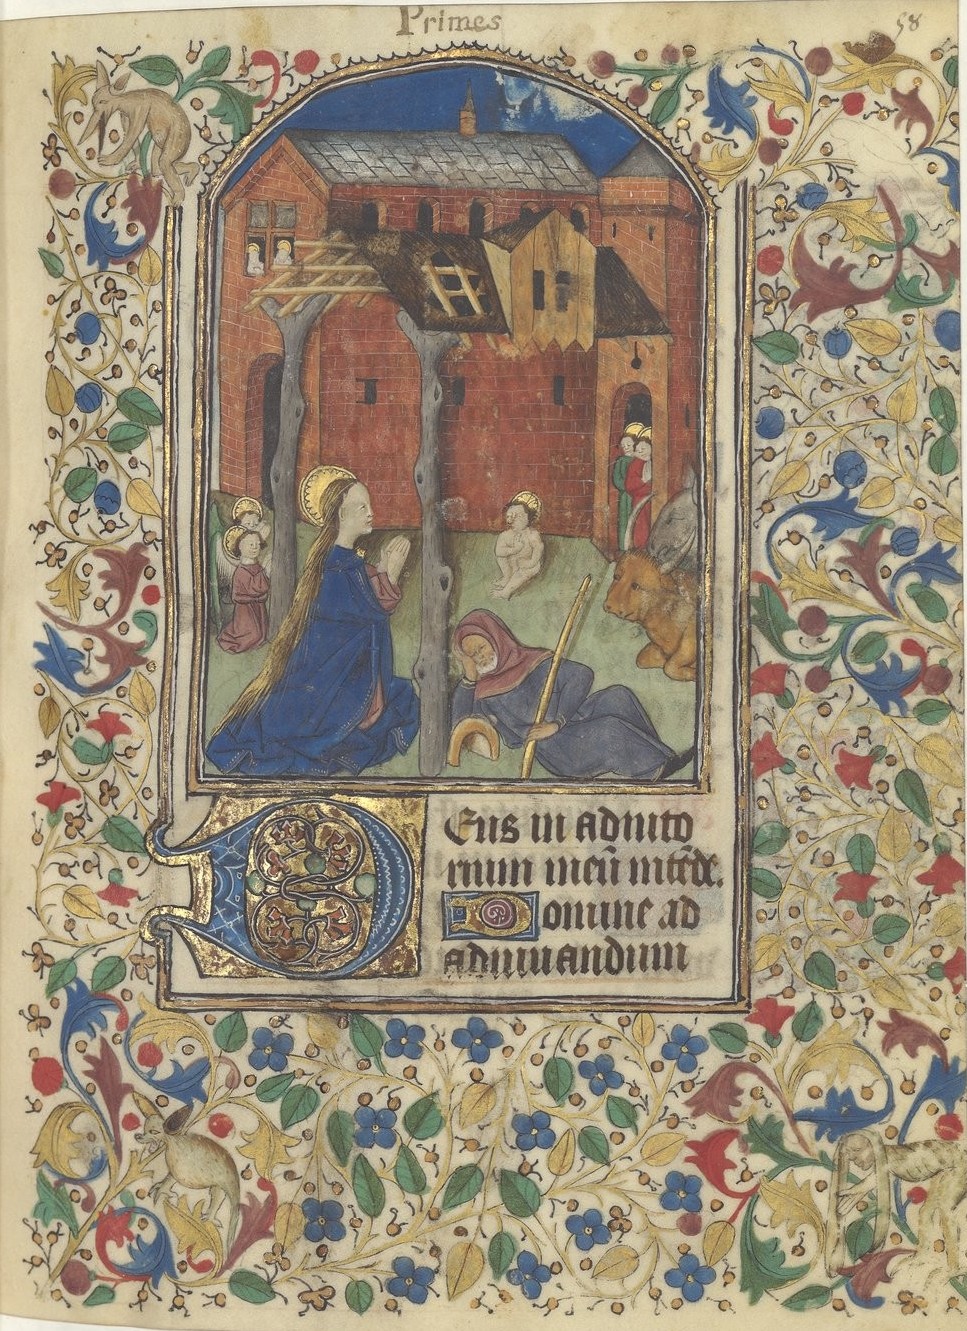 Primes
58
Deus in adiuto
rium meū intēde.
Domine ad
adiuuandum